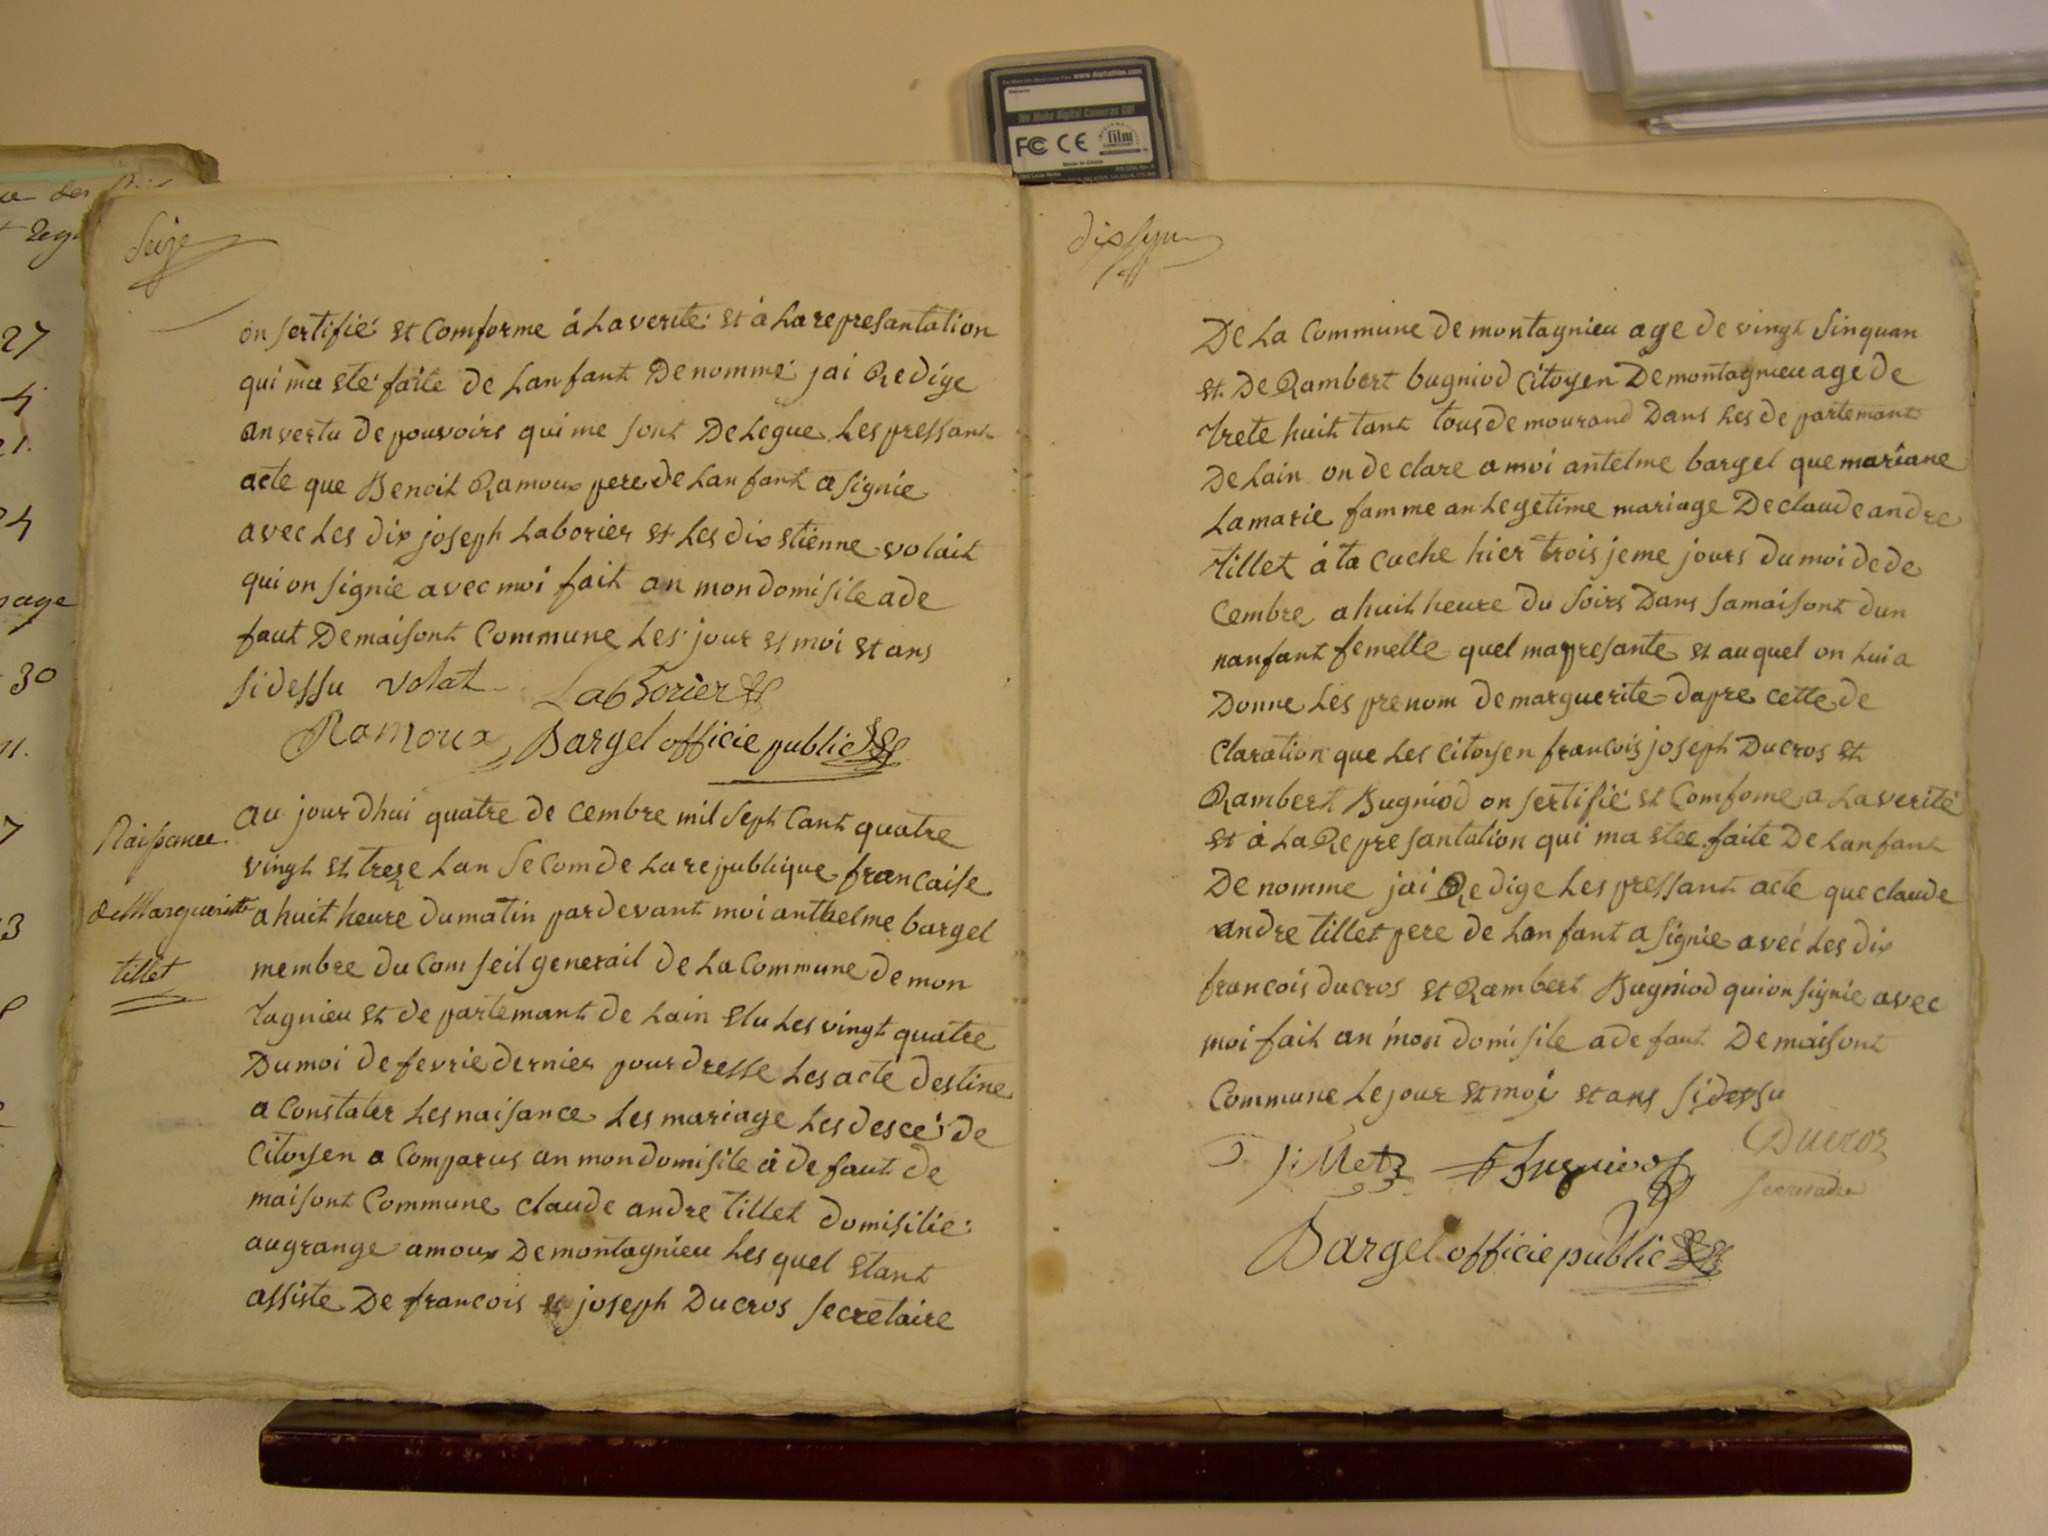 Seize
on sertifié et Comforme á La verité et á La represantation
qui ma eté faite de Lanfant Denommé jai Redige
an vertu de pouvoirs qui me sont Delegue Les pressant
acte que Benoit Ramoux pere de Lanfant a signie
avec Les dix joseph Laborier et Les dix etienne volait
qui on signie avec moi fait an mon domisile a de
faut De maisont Commune Les jour et moi et ans
sidessu volat Laborier
Ramoux Bargel officie public
Naissance
de Marguerite
tillet
au jourdhui quatre de cembre mil Seph Cant quatre
vingt et treze Lan Secom de La republique francaise
a huit heure du matin pardevant moi anthelme bargel
membre du Com seil generail de La Commune de mon
tagnieu et de partemant de Lain elu Les vingt quatre
Du moi de fevrie dernier pour dresse Les acte destine
a Constater Les naisance Les mariage Les deseé de
Citoyen a Comparus an mon domisile á de faut de
maisont Commune claude andre tillet domisilié
au grange amoux De montagnieu Les quel etant
assiste De francois et joseph Ducros secretaire
dissept
De La Commune De montagnieu age de vingt Sinquan
et De Rambert bugniod Citoyen De montagnieu age de
trete huit tant tous demourand Dans Les de partemant
De Lain on de clare a moi antelme bargel que mariane
Lamarie famme an Legetime mariage De claude andre
tillet á ta cuche hier troisjeme jours du moi de de
Cembre a huit heure du soirs Dans samaisont dun
nanfant femelle quel ma presante et au quel on Lui a
Donne Les prenom de marguerite dapre cette de
Claration que Les citoyen francois joseph Ducros et
Rambert Bugniod on sertifié et Comfome a La verité
et á La Represantation qui ma etee faite De Lanfant
De nomme jai Redige Les pressant acte que claude
andre tillet pere de Lanfant a signie avec Les dix
francois ducros et Rambert Bugniod qui on signie avec
moi fait an mon domisile a de faut De maisont
Commune Le jour et moi et ans sidessu
Ducros
Tillet Bugniod secretaire
Bargel officie public
www.dephotfilm.com
We Make Digital Cameras GO!
FC CE film
Made in China
27
24
page
30